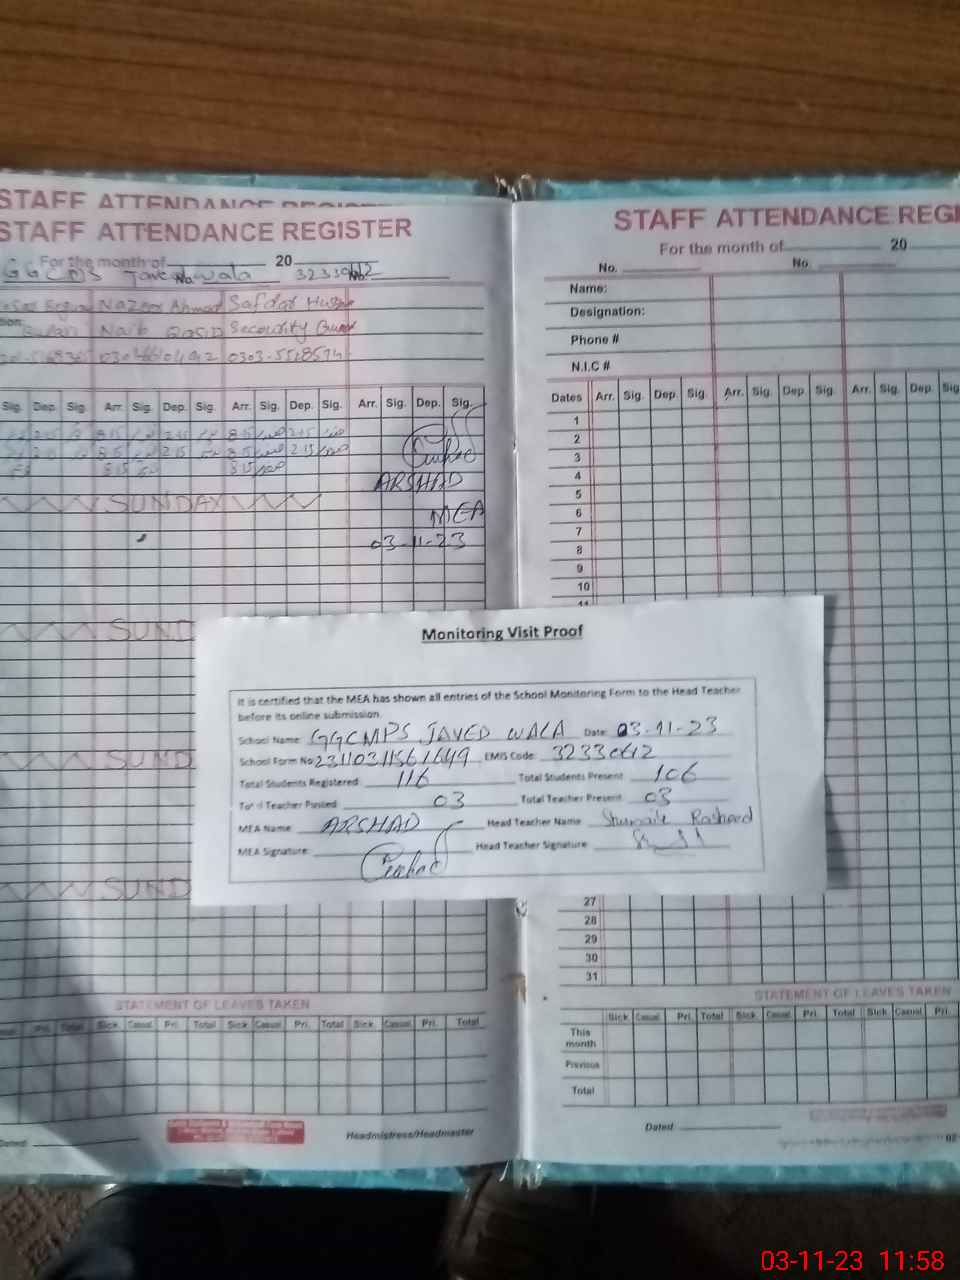 STAFF ATTENDANCE REGISTER
STAFF ATTENDANCE REGISTER
For the month of 20
GGCMPS Javed wala
No.
Nazeer Ahmad Safdar
Naib Qasid Security Guard
0303-
Sig. Dep. Sig. Arr. Sig. Dep. Sig. Arr. Sig. Dep. Sig. Arr. Sig. Dep. Sig.
8:15 2:15 8:15 2:15
8:15 2:15 8:15 2:15
8:15 8:15
ARSHAD
SUNDAY
MEA
03-11-23
SUND
SUND
SUND
STATEMENT OF LEAVES TAKEN
Pri. Total Sick Casual Pri. Total Sick Casual Pri. Total Sick Casual Pri. Total
Dated
Headmistress/Headmaster
STAFF ATTENDANCE REGI
For the month of 20
No. No.
Name:
Designation:
Phone #
N.I.C #
Dates Arr. Sig. Dep Sig. Arr. Sig. Dep Sig. Arr. Sig. Dep Sig.
1
2
3
4
5
6
7
8
9
10
11
Monitoring Visit Proof
It is certified that the MEA has shown all entries of the School Monitoring Form to the Head Teacher
before its online submission.
School Name: GGCMPS JAVED WALA Date: 03-11-23
School Form No: EMIS Code:
Total Students Registered: 116 Total Students Present: 106
Total Teacher Posted: 03 Total Teacher Present: 03
MEA Name: ARSHAD Head Teacher Name: Rasheed
MEA Signature: Head Teacher Signature:
27
28
29
30
31
STATEMENT OF LEAVES TAKEN
Sick Casual Pri. Total Sick Casual Pri. Total Sick Casual Pri.
This
month
Previous
Total
Dated
03-11-23 11:58